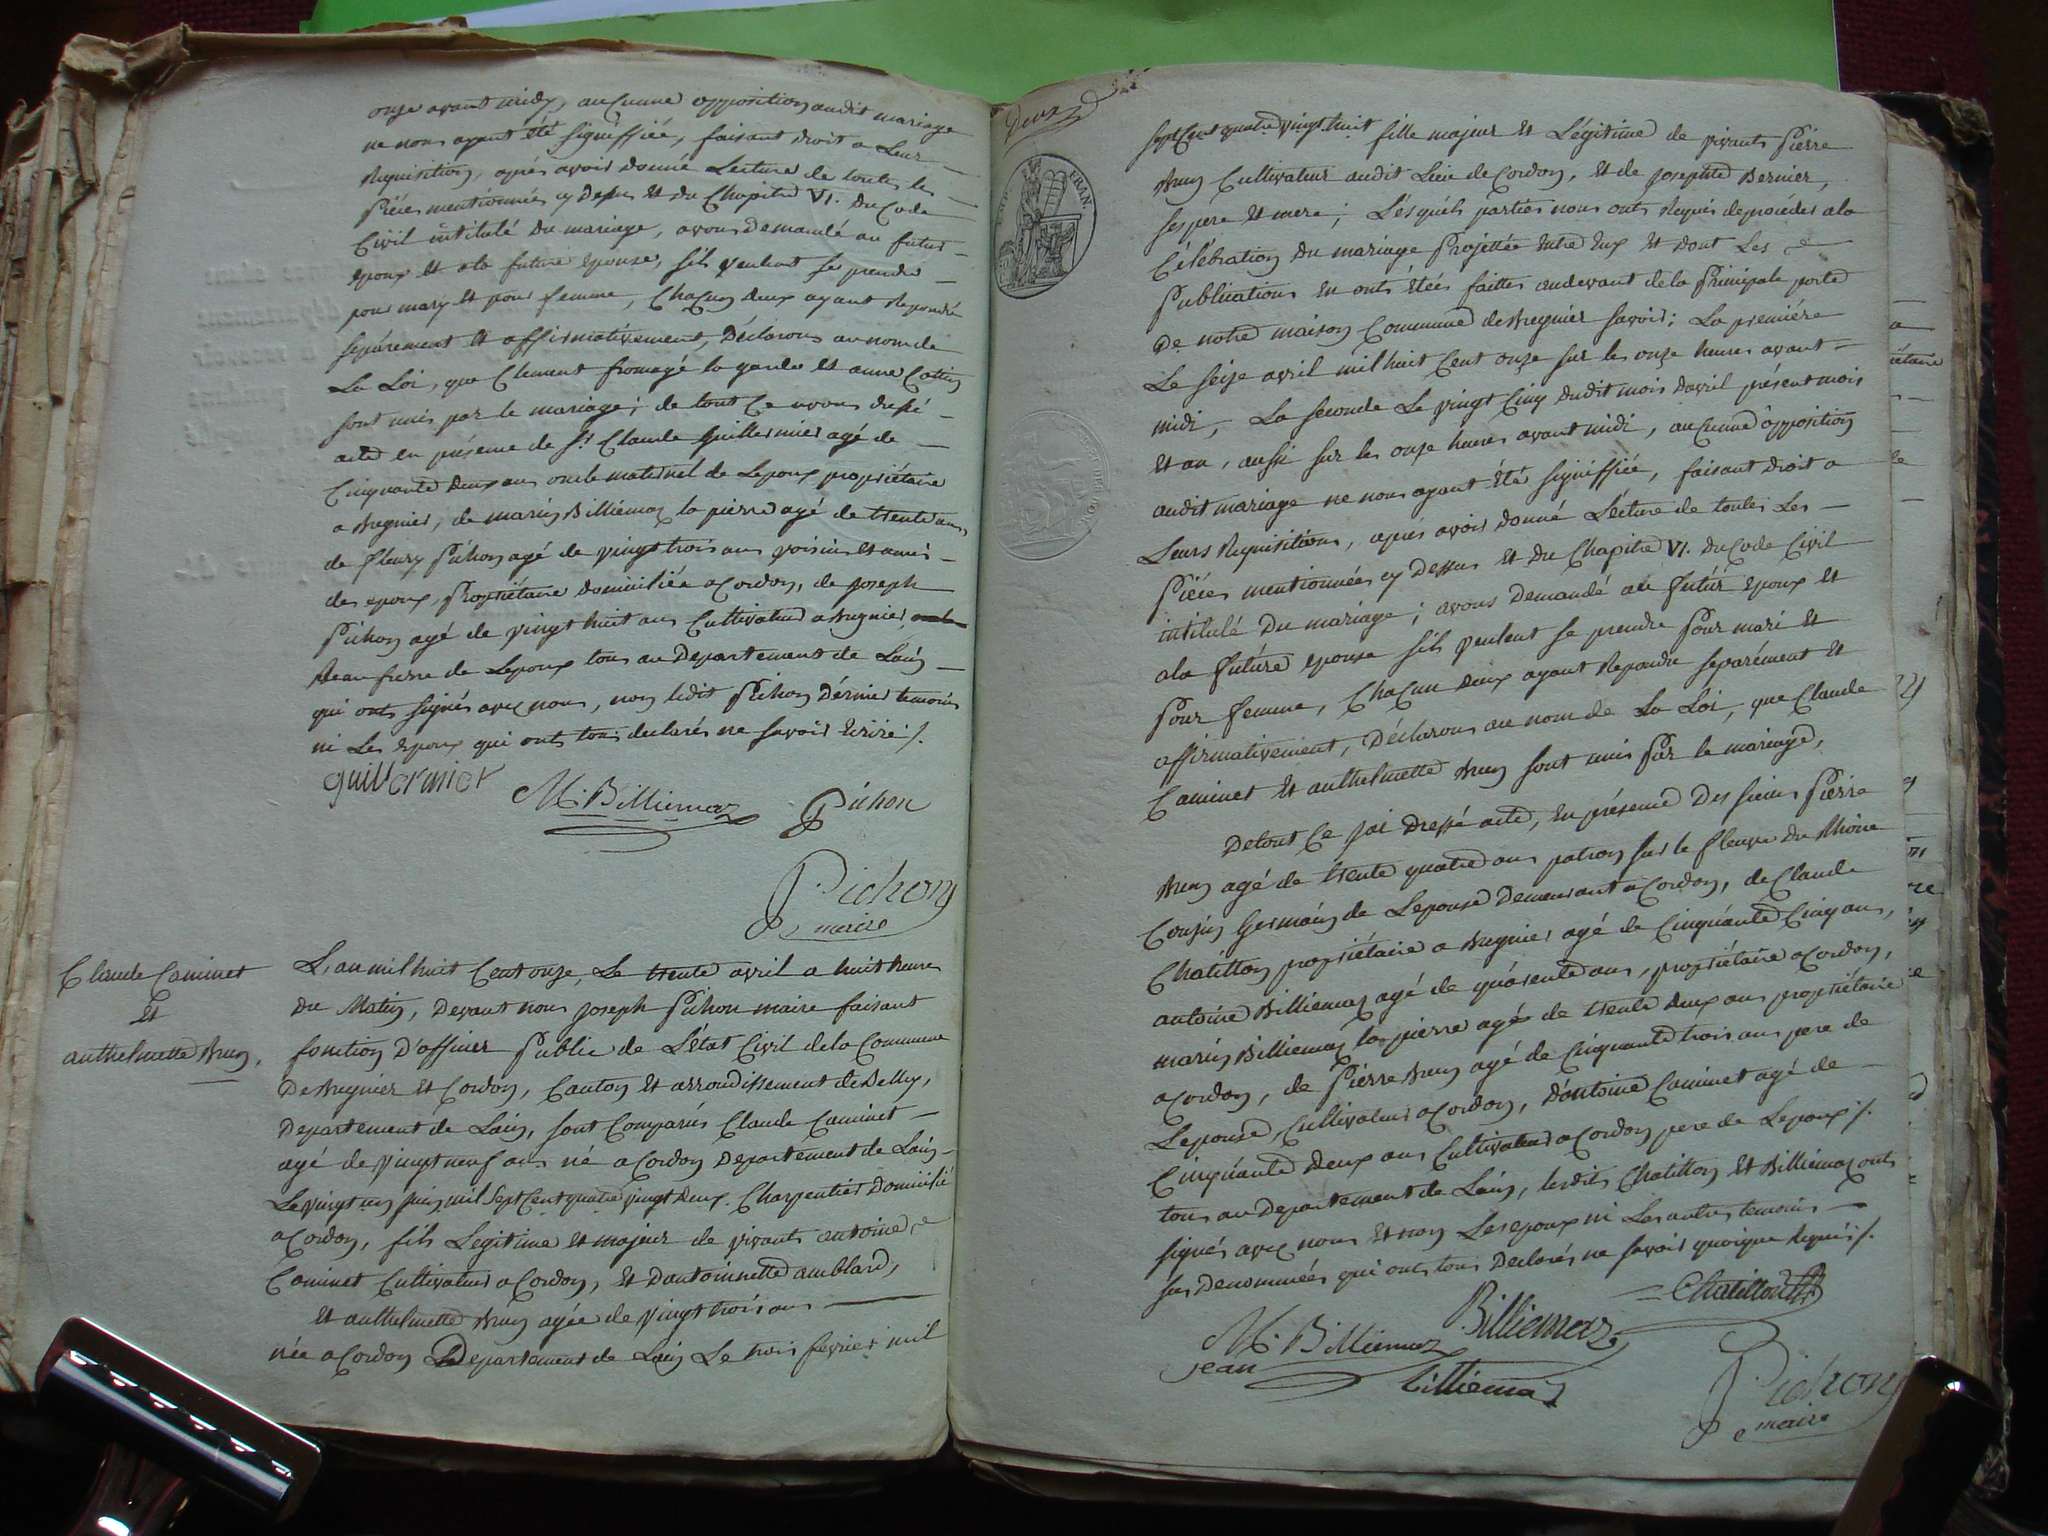 onze avant midy, aucunne opposition audit mariage
ne nous ayant été signiffiée, faisant droit a Leur
Requisition, après avoir donné Lecture de toutes les
piéces mentionnées cy dessus et du Chapitre VI. du Code
Civil intitulé du mariage, avons demandé au futur
epoux et a la future epouse, s'ils veulent se prendre
pour mary et pour femme, Chacun deux ayant Repondu
séparement et affirmativement, Déclarons au nom de
La Loi, que Clément fromagé la garde et anne Cottin
sont unis par le mariage; de tout Ce avons dressé
acte en présence de Sr. Claude Guillermier agé de
Cinquante deux ans oncle maternel de Lepoux propriétaire
a Bregnier, de marin Billiemaz la pierre agé de trente ans
de fleury Pichon agé de vingt trois ans voisin et ami
des epoux, propriétaire domiciliée a Cordon, de Joseph
Pichon agé de vingt huit ans Cultivateur a Bregnier
Beau frerre de Lepoux tous au Departement de Lain
qui onts signés avec nous, non ledit Pichon dérnier temoin
ni Les epoux qui onts tous declarés ne savoir écrire /.
guillermier
M. Billiemaz
Pichon
Pichon
maire
Claude Caminet
Et
anthelmette Brun,
L'an mil huit Cent onze, Le trente avril a huit heures
du Matin, Devant nous Joseph Pichon maire faisant
fonction D'officier Public de L'état Civil de la Commune
De Bregnier et Cordon, Canton et arrondissement de Belley,
Departement de Lain, sont Comparus Claude Caminet
agé de vingt neuf ans né a Cordon Departement de Lain
Le vingt un Juin mil Sept Cent quatre vingt deux. Charpentier Domicilié
a Cordon, fils Legitime et majeur de vivants antoine
Caminet Cultivateur a Cordon, et Dantoinette amblard,
et anthelmette Brun agée de vingt trois ans
née a Cordon Departement de Lain Le trois février mil
Deux
EMP. FRAN.
sept Cent quatre vingt huit fille majeur et Légitime de vivants Pierre
Brun Cultivateur audit Lieu de Cordon, et de Josephte Bernier,
ses pere et mere; Lésquels parties nous onts Requis de procéder a la
Célébration du mariage Projettée entre Eux et dont Les
Publications en onts étées faittes au devant de la Principale porte
De notre maison Commune de Bregnier savoir; La première
Le seize avril mil huit Cent onze sur les onze heures avant
midi, La seconde Le vingt Cinq dudit mois davril présent mois
et an, aussi sur les onze heures avant midi, aucunne opposition
audit mariage ne nous ayant été signiffiée, faisant droit a
Leurs Requisitions, après avoir donné Lécture de toutes Les
Piéces mentionnées cy Dessus et du Chapitre VI. du Code Civil
intitulé du mariage; avons Demandé au futur epoux et
a la future epouse s'ils veulent se prendre Pour mari et
Pour femme, Chacun deux ayant Repondu separément et
affirmativement, Déclarons au nom de La Loi, que Claude
Caminet et anthelmette Brun sont unis Par le mariage,
De tout Ce jai Dressé acte, en présence Des sieurs Pierre
Brun agé de trente quatre ans patron sur le fleuve du Rhône
Cousin Germain de Lepouse Demeurant a Cordon, de Claude
Chatillon propriétaire a Bregnier agé de Cinquante Cinq ans,
antoine Billiemaz agé de quarente ans, propriétaire a Cordon,
marin Billiemaz la pierre agé de trente deux ans propriétaire
a Cordon, de Pierre Brun agé de Cinquante trois ans pere de
Lepouse, Cultivateur a Cordon, D'antoine Caminet agé de
Cinquante deux ans Cultivateur a Cordon pere de Lepoux /.
tous au Departement de Lain, lesdits Chatillon et Billiemaz onts
signés avec nous et non Les epoux ni Les autres temoins
sus Denommées qui onts tous Déclarés ne savoir quoique Requis /.
Chatillon
M. Billiemaz
Billiemaz
Jean
Billiemaz
Pichon
maire